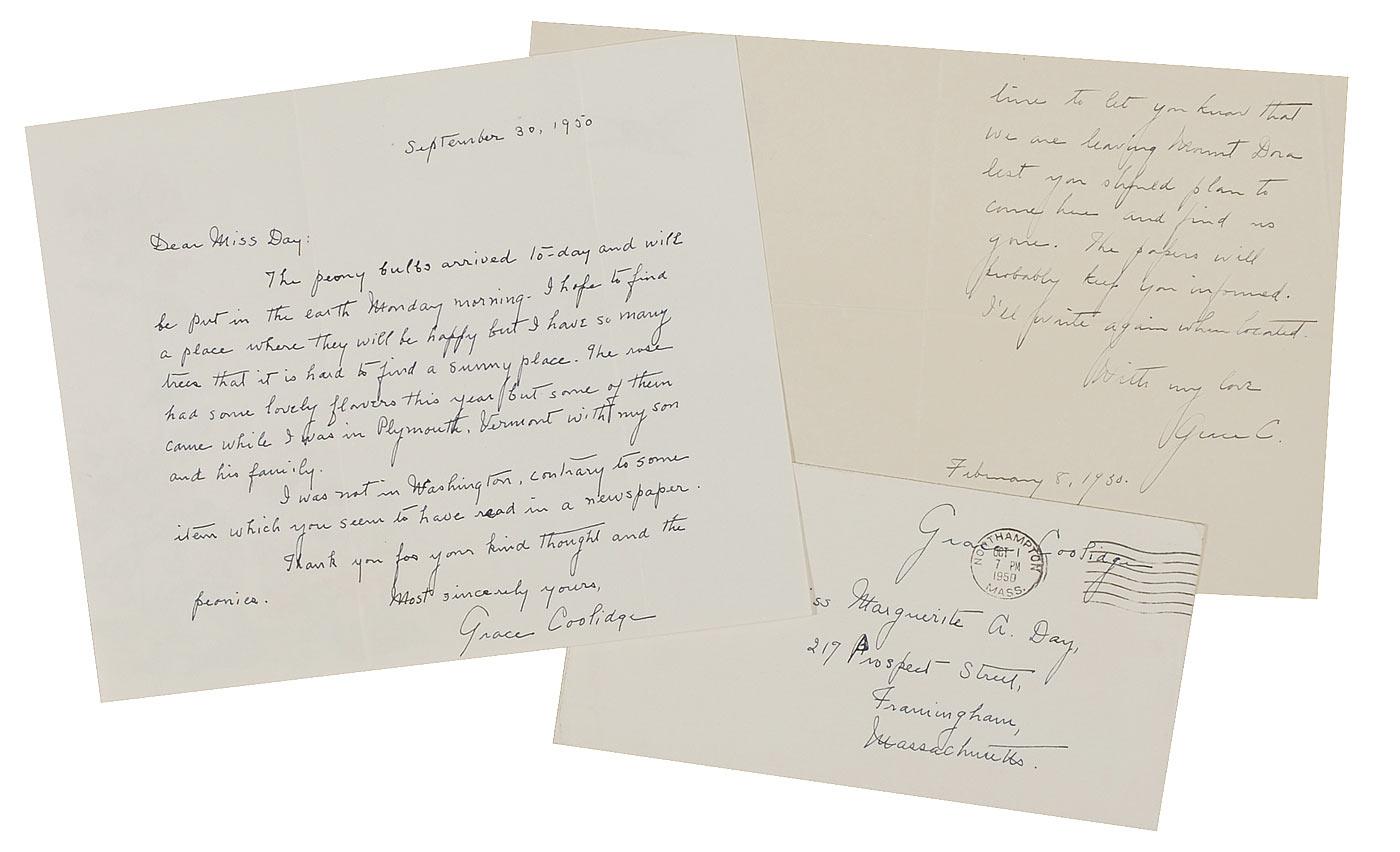 September 30, 1950
Dear Miss Day:
The peony bulbs arrived to-day and will
be put in the earth Monday morning. I hope to find
a place where they will be happy but I have so many
trees that it is hard to find a sunny place. The rose
had some lovely flowers this year but some of them
came while I was in Plymouth, Vermont with my son
and his family.
I was not in Washington, contrary to some
item which you seem to have read in a newspaper.
Thank you for your kind thought and the
peonies.
Most sincerely yours,
Grace Coolidge
time to let you know that
we are leaving Mount Dora
lest you should plan to
come here and find us
gone. The papers will
probably keep you informed.
I'll write again when located.
With my love
Grace C.
February 8, 1930.
Grace Coolidge
NORTHAMPTON
OCT 1
7 PM
1950
MASS.
ss Marguerite A. Day,
217 Prospect Street,
Framingham,
Massachusetts.